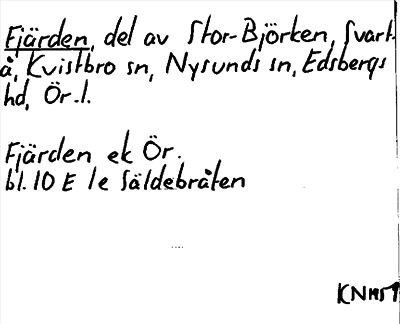 Fjärden, del av Stor-Björken, Svart-
å, Kvistbro sn, Nysunds sn, Edsbergs
hd, Ör. l.
Fjärden ek Ör.
bl. 10 E 1e Säldebråten